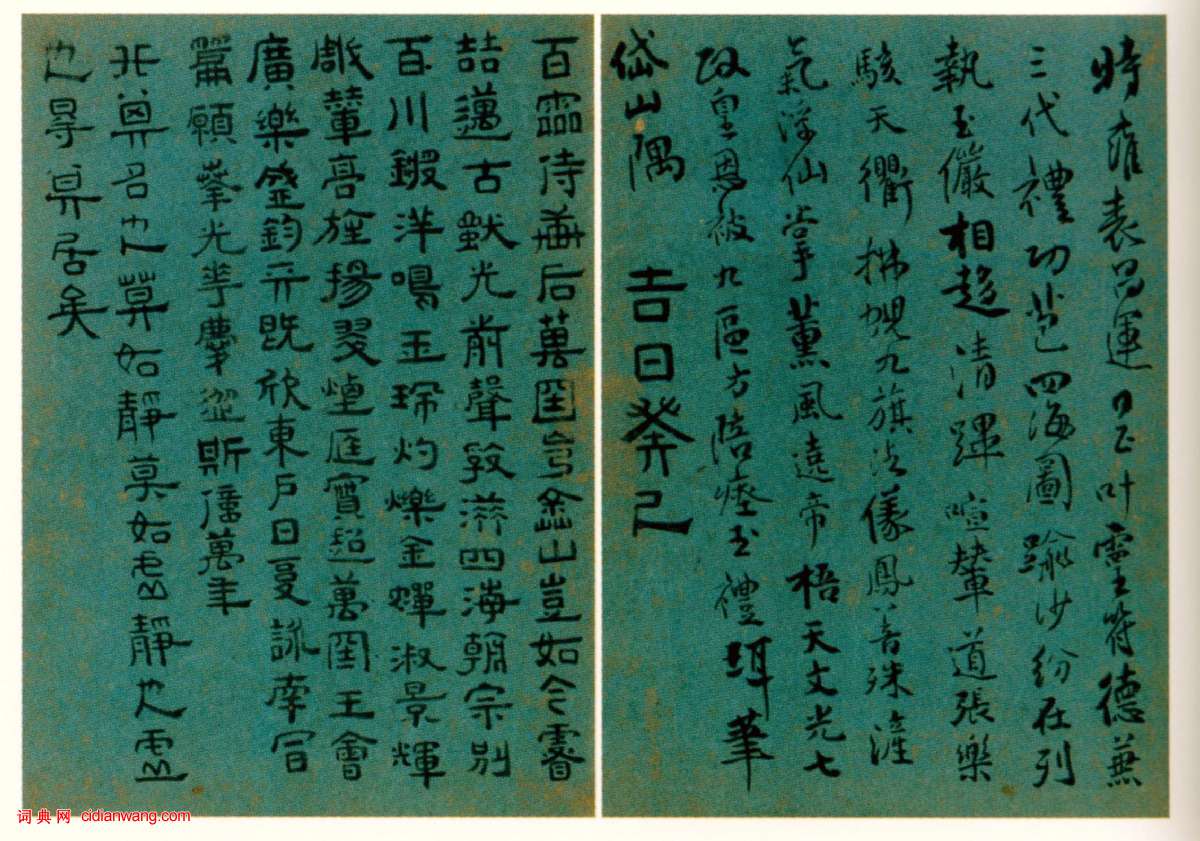 時雍表昌運日正叶靈符德兼
三代禮功苞四海圖踰沙紛在列
執玉儼相趨清蹕喧輦道張樂
駭天衢拂蜺九旗映儀鳳八音殊佳
氣浮仙掌薰風遶帝梧天文光七
政皇恩被九區方陪瘞玉禮珥筆
岱山隅 吉日癸巳
百靈侍軒后萬國會塗山豈如今睿
喆邁古獸光前聲教溢四海朝宗別
百川鏘洋鳴玉珮灼爍金蟬淑景輝
彫輦高旌揚翠煙庭實超萬國王會
廣樂盛鈞天既欣東戶日夏詠南風
篇願奉光華慶從斯億萬年
非其名也莫如靜莫如虛靜也虛
也得其居矣
词典网 cidianwang.com